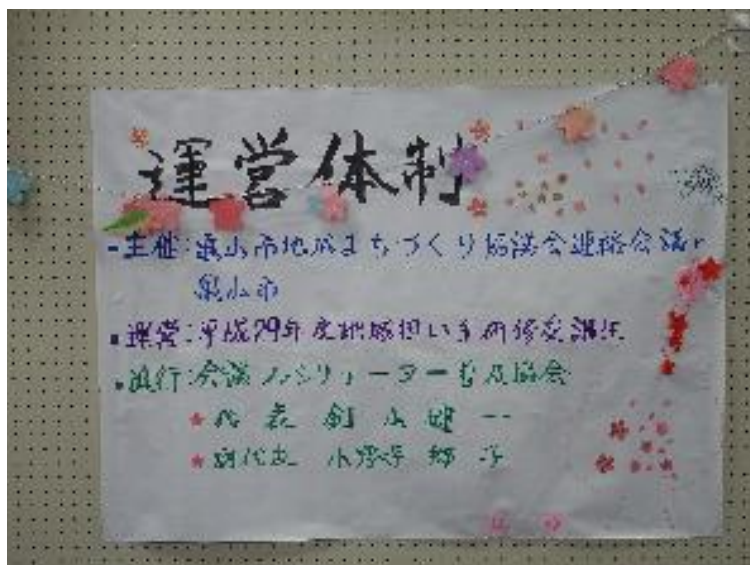 運営体制
・主催:亀山市地域まちづくり協議会連絡会議・
亀山市
・運営:平成29年度地域担い手研修受講生
・進行:会議ファシリテーター普及協会
★代表 釘山健一
★副代表 小野寺郷子